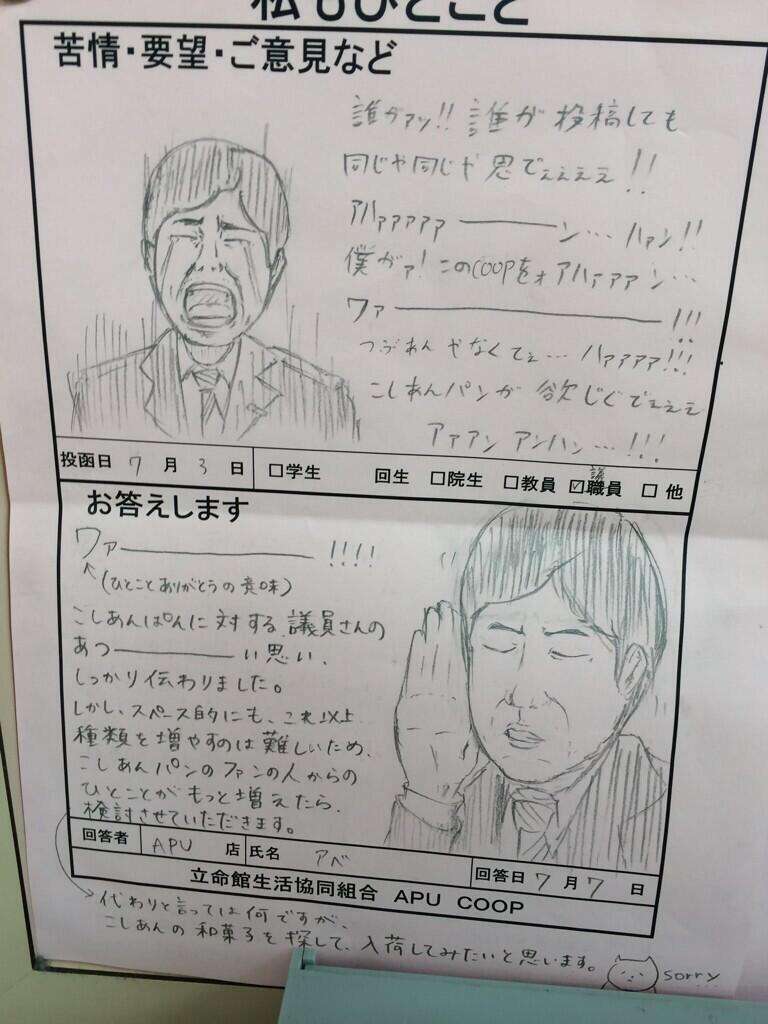 私もひとこと
苦情・要望・ご意見など
誰がァッ!! 誰が 投稿しても
同じや同じや 思でェェェェ!!
アハァァァァァ――――ン… ハァン!!
僕がァ! このCOOPをォ アハァァァン…
ワァ――――――――――!!!
つぶあんやなくてェ… ハァァァァ!!!
こしあんパンが 欲じぐでェェェ
アァアン アンハン…!!!
投函日 7 月 3 日 □学生 回生 □院生 □教員 ☑職員 □他
議
お答えします
ワァ――――――――!!!!
(ひとことありがとうの意味)
こしあんぱんに対する議員さんの
あつ――――――い思い、
しっかり伝わりました。
しかし、スペース的にも、これ以上
種類を増やすのは難しいため、
こしあんパンのファンの人からの
ひとことがもっと増えたら、
検討させていただきます。
回答者 APU 店 氏名 アベ 回答日 7 月 7 日
立命館生活協同組合 APU COOP
代わりと言っては何ですが、
こしあんの和菓子を探して、入荷してみたいと思います。
sorry